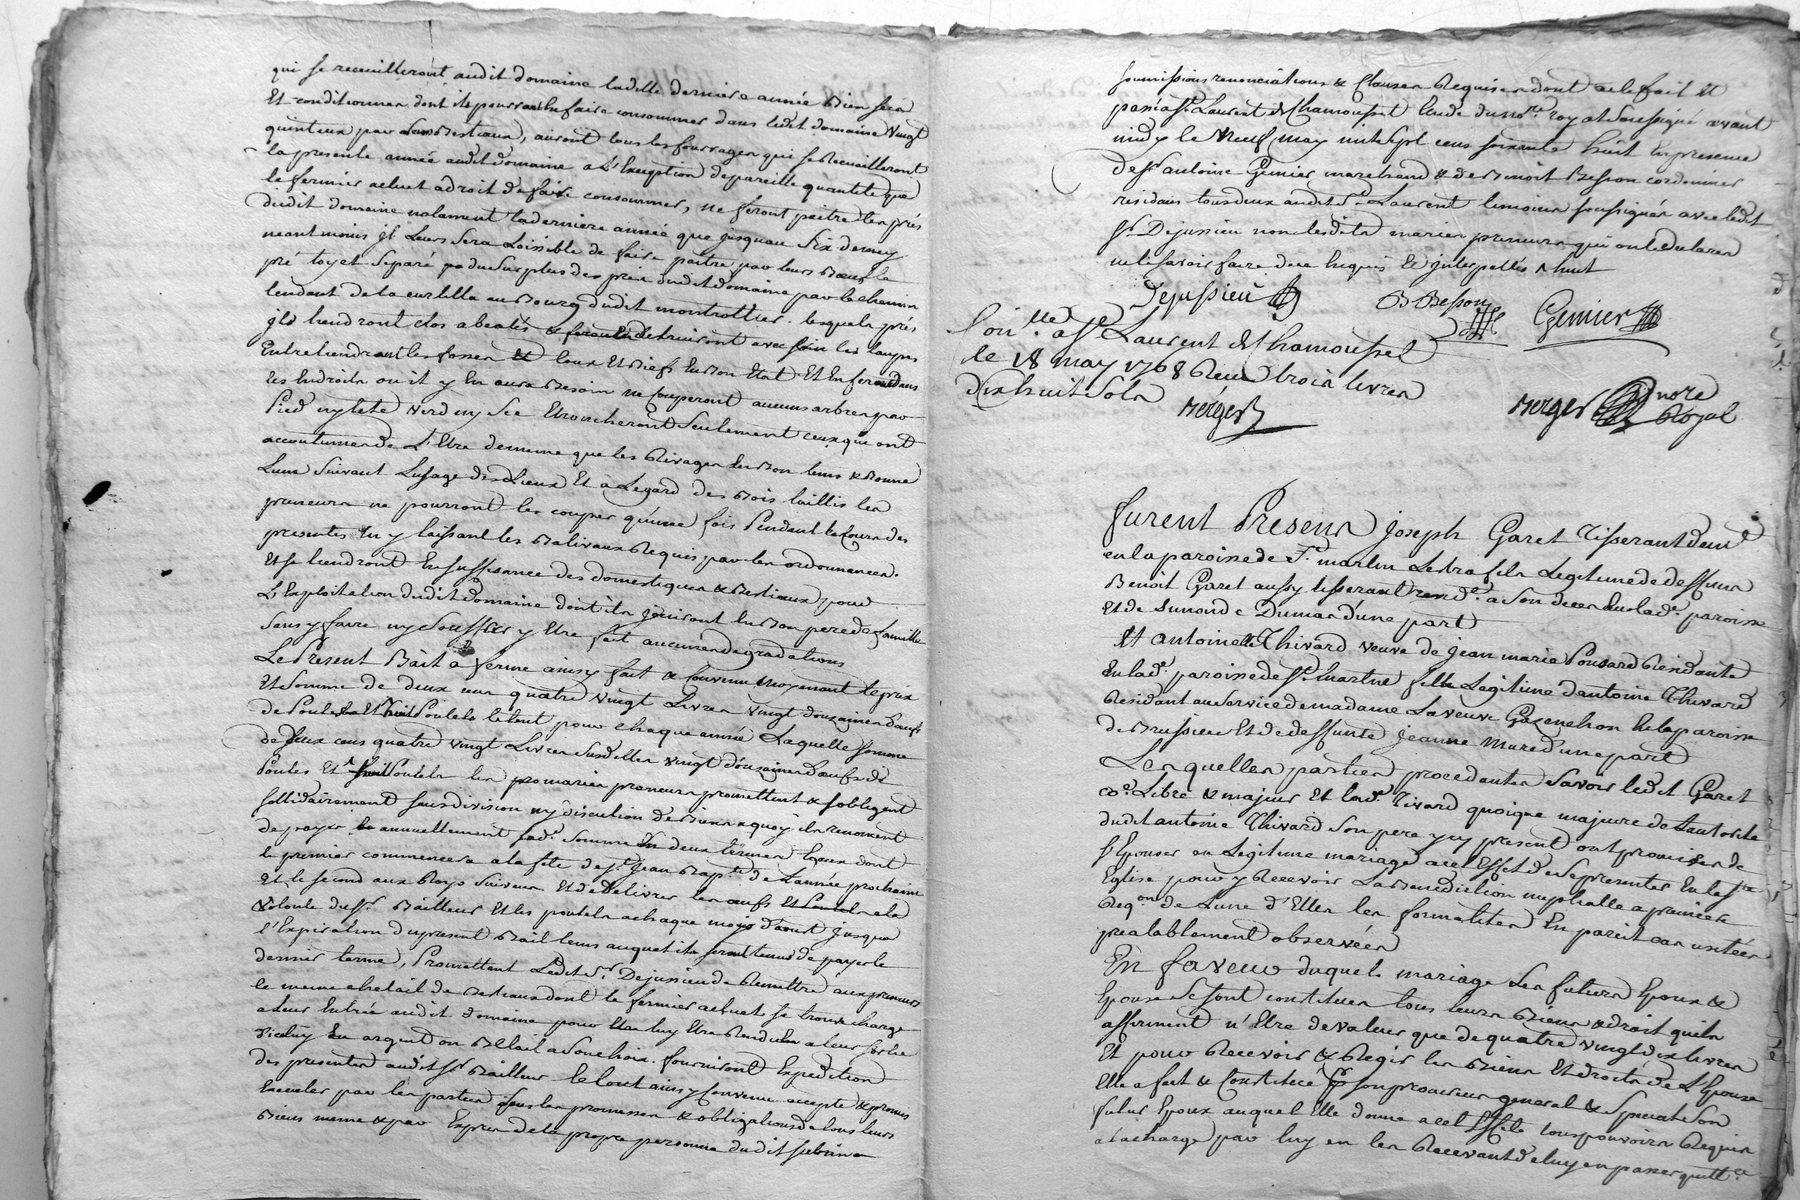 qui se receuilleront audit domaine ladite derniere année Bien secs
Et conditionnes dont ils pourront en faire consommer dans ledit domaine vingt
quinteux par leurs Bestiaux, auront tous les fourrages qui se Recueilleront
la presente année audit domaine a L'Exception de pareille quantité que
le fermier actuel a droit de faire consommer, ne feront paitre les prés
dudit domaine nolament la derniere année que jusquau six de may
neant moins jl Leurs sera Loissible de faire paitre par leurs Bœufs le
pré loyet Separé du Surplus des prés dudit domaine par le chemin
tendant de la au Bourg dudit montrottier lesquels prés
jls tiendront clos et detruiront avec soin les taupes
Entretiendront les fosses Eaux Et Biefs En Bon Etat Et En feront dans
les Endroits ou il y En aura Besoin ne Couperont aucuns arbres par
Pied ny tete verd ny sec Etroncheront Seulement ceux qui ont
accoutume de L'Etre de meme que les Rivages En Bon tems & Bonne
Lune Suivant Lusage des Lieux Et a Legard des Bois taillis les
preneurs ne pourront les couper qu'une fois Pendant le Cours des
presentes En y laissant les Balivaux Requis par les ordonnances.
Et se tiendront En suffisance des domestiques & Bestiaux pour
L'Exploitation dudit domaine dont ils jouiront En Bon pere de famille
Sans y faire ny Souffrir y Etre fait aucunes degradations
Le Present Bail a ferme ainsy fait & Convenu moyenant le prix
Et Somme de deux cens quatre vingt Livres vingt douzaines d'œufs
de Poules Et huit Poulets le tout pour chaque année Laquelle Somme
de deux cens quatre vingt Livres Susdittes vingt douzaines d'œufs de
Poules Et huit Poulets les preneurs promettent & s'obligent
sollidairement sans division ny discution de Biens a quoy ils renoncent
de payer annuellement lad. Somme En deux termes Egaux dont
le premier commencera a la fête de St. Jean Bapte. de L'année prochaine
Et le second aux Roys Suivans Et de delivrer les œufs a la
volonté du Sr. Bailleur Et les poulets a chaque mois d'aout jusqua
l'Expiration du present Bail tems auquel ils seront tenus de payer le
dernier terme, Promettent Ledit Sr. Dejussieu de Remettre aux preneurs
le meme chetail de Bestiaux dont le fermier actuel se trouve chargé
a Leur Entrée audit domaine pour Etre luy Etre Rendu a leur sortie
dicelluy En argent ou Bétail a Son choix. fourniront Expedition
des presentes audit Sr. Bailleur le tout ainsy Convenu accepté & promis
Executer par les parties sous les promesses & obligations de tous leurs
Biens meme & par Exprés de la propre personne dudit
soumissions renonciations & Clauses Requises dont acte fait Et
passé a St. Laurent de Chamousset Etude du nore. royal Soussigné avant
midy le neuf may mil sept cens soixante huit En presence
de Sr. antoine Gemier marchand & de Benoit Besson cordonnier
residans tous deux audit St. Laurent temoins soussignés avec ledit
Sr. Dejussieu non lesdits maries preneurs qui ont declaré
ne le savoir faire de ce Enquis & jnterpellés
Dejussieu
B Besson
Gemier
Con.lle a St. Laurent de Chamousset
le 18 may 1768 Reçu trois livres
Dix huit Sols
Berger
Berger nore Royal
furent Presens Joseph Garet Tisserant demt.
en la paroisse de St. martin Lestra fils Legitime de deffunt
Benoit Garet aussy tisserant a Son deces En lad. paroisse
Et de Dumas d'une part
Et antoinette Thivard veuve de Jean marie Ponsard Residante
En lad. paroisse de St. martin fille Legitime d'antoine Thivard
Residant au Service de madame La veuve de la paroisse
de Brussieu Et de deffunte Jeanne Mure d'une part
Lesquelles parties procedantes Savoir ledit Garet
co. Libre & majeur Et lade. Tivard quoique majeure de l'autorité
dudit antoine Thivard Son pere y present ont promis de
s'Epouser en Legitime mariage a cet Effet de se presenter En la Ste
Eglise pour y Recevoir La Benediction nuptialle a premiere
Reqon. de L'une d'Elles les formalités En pareil cas usitées
prealablement observées
En faveur duquel mariage Les futurs Epoux &
Epouse se sont constitués tous leurs Biens & droits quils
affirment n'Etre de valeur que de quatre vingt dix livres
Et pour Recevoir & Regir les Biens Et droits de L'Epouse
Elle a fait & Constitué pour son procureur general & Special Son
futur Epoux auquel Elle donne a cet Effet tous pouvoirs Requis
a la charge par luy en les Recevant d'en passer quitte.